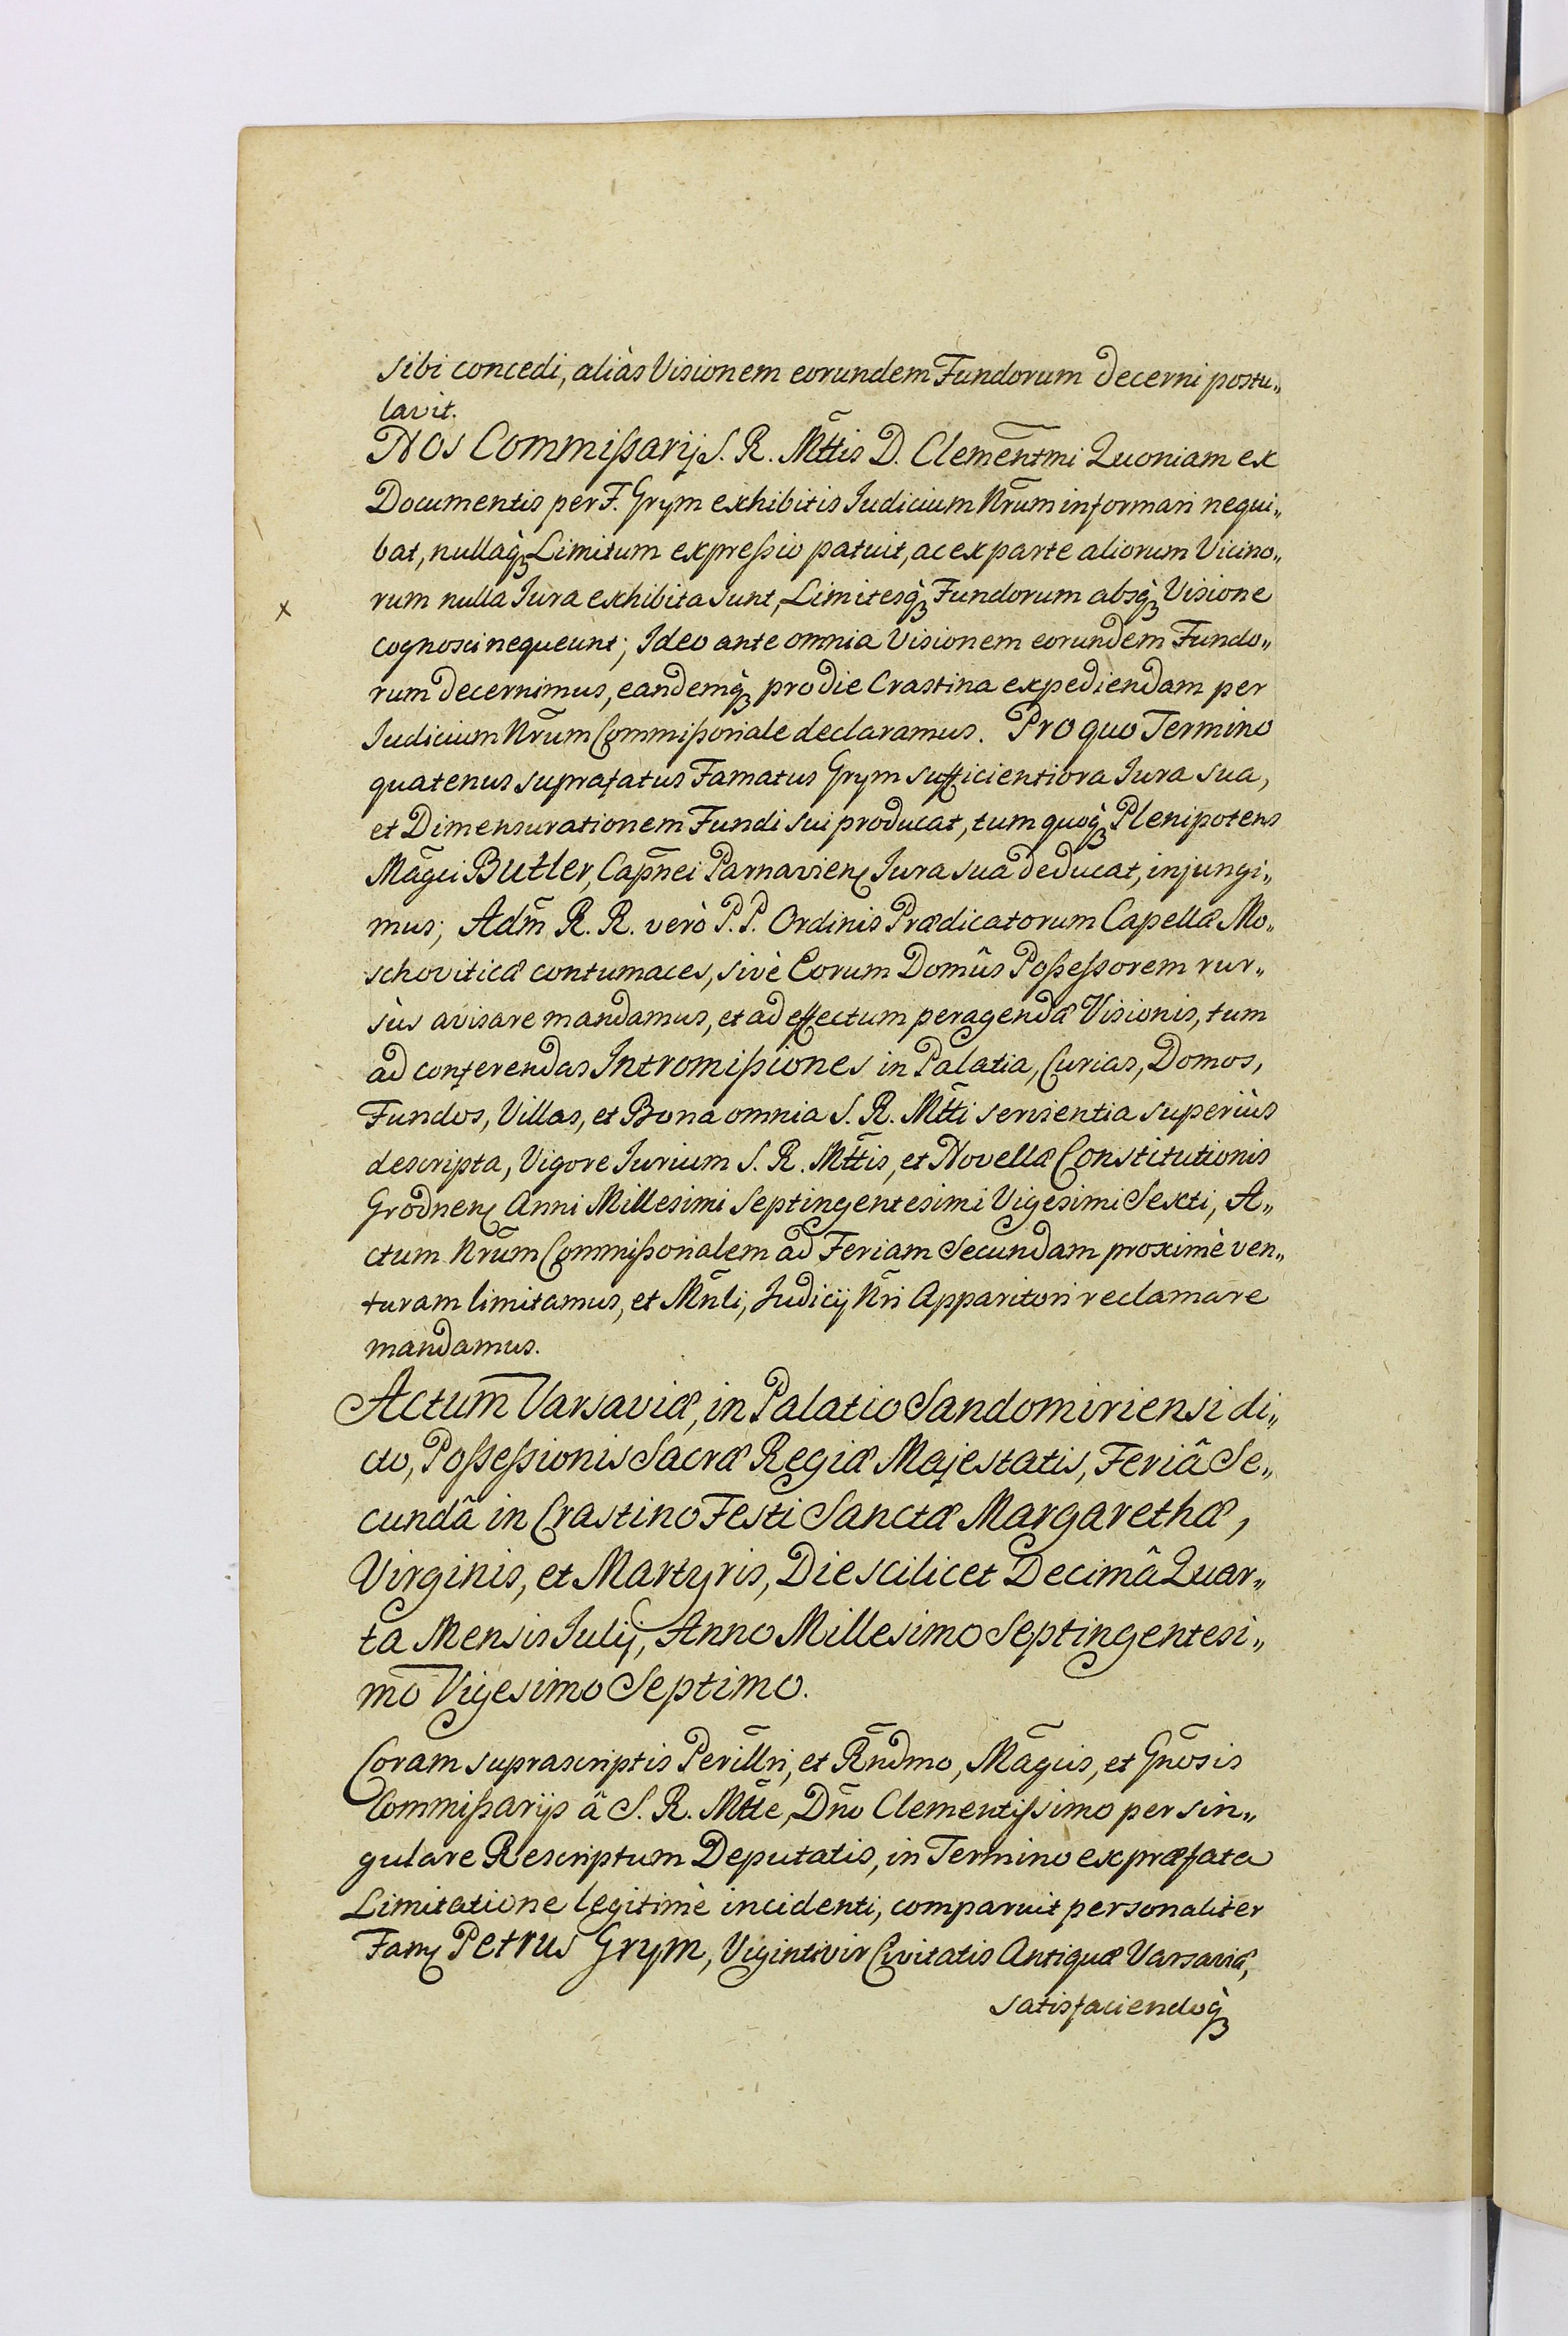 sibi concedi, aliàs Visionem eorundem Fundorum decerni postu„
lavit.
Nos Commißarij S. R. Mt̃tis D. Clemen͠tmi Quoniam ex
Documentis per F. Grym exhibitis Iudicium Nr̃um informari nequi„
bat, nullaq̀ꝫ Limitum expreßio patuit, ac ex parte aliorum Vicino„
x
rum nulla Iura exhibita sunt, Limitesq̀ꝫ Fundorum absq̀ꝫ Visione
cognosci nequeunt; Ideo ante omnia Visionem eorundem Fundo„
rum decernimus, eandemq̀ꝫ pro die Crastina expediendam per
Iudicium Nr̃um Commißoriale declaramus. Pro quo Termino
quatenus suprafatus Famatus Grym sufficientiora Iura sua,
et Dimensurationem Fundi sui producat, tum quoq̀ꝫ Plenipotens
Mãgci Butler, Cap̃nei Parnavienꝭ Iura sua deducat, injungi„
mus; Adm̃ R. R. verò P. P. Ordinis Prædicatorum Capellæ Mo„
schoviticæ contumaces, sivè Eorum Domûs Poßeßorem rur„
sùs avisare mandamus, et ad effectum peragendæ Visionis, tum
ad conferendas Intromißiones in Palatia, Curias, Domos,
Fundos, Villas, et Bona omnia S. R. Mt̃ti servientia superiùs
descripta, Vigore Iurium S. R. Mt̃tis, et Novellæ Constitutionis
Grodnenꝭ Anni Millesimi Septingentesimi Vigesimi Sexti, A„
ctum Nr̃um Commißorialem ad Feriam Secundam proximè ven„
turam limitamus, et Mñli, Iudicij Nr̃i Apparitori reclamare
mandamus.
Actum Varsaviæ, in Palatio Sandomiriensi di„
cto, Poßeßionis Sacræ Regiæ Majestatis, Feriâ Se„
cundâ in Crastino Festi Sanctæ Margarethæ,
Virginis, et Martyris, Die scilicet Decimâ Quar„
ta Mensis Iulij, Anno Millesimo Septingentesi„
mo Vigesimo Septimo.
Coram suprascriptis Perill̃ri, et Rñdmo, Mãgcis, et Gñosis
Commißarijs â S. R. Mt̃te, Dño Clementißimo per sin„
gulare Rescriptum Deputatis, in Termino ex præfata
Limitatione legitimè incidenti, comparuit personaliter
Famꝭ Petrus Grym, Vigintivir Civitatis Antiquæ Varsaviæ,
satisfaciendoq̀ꝫ